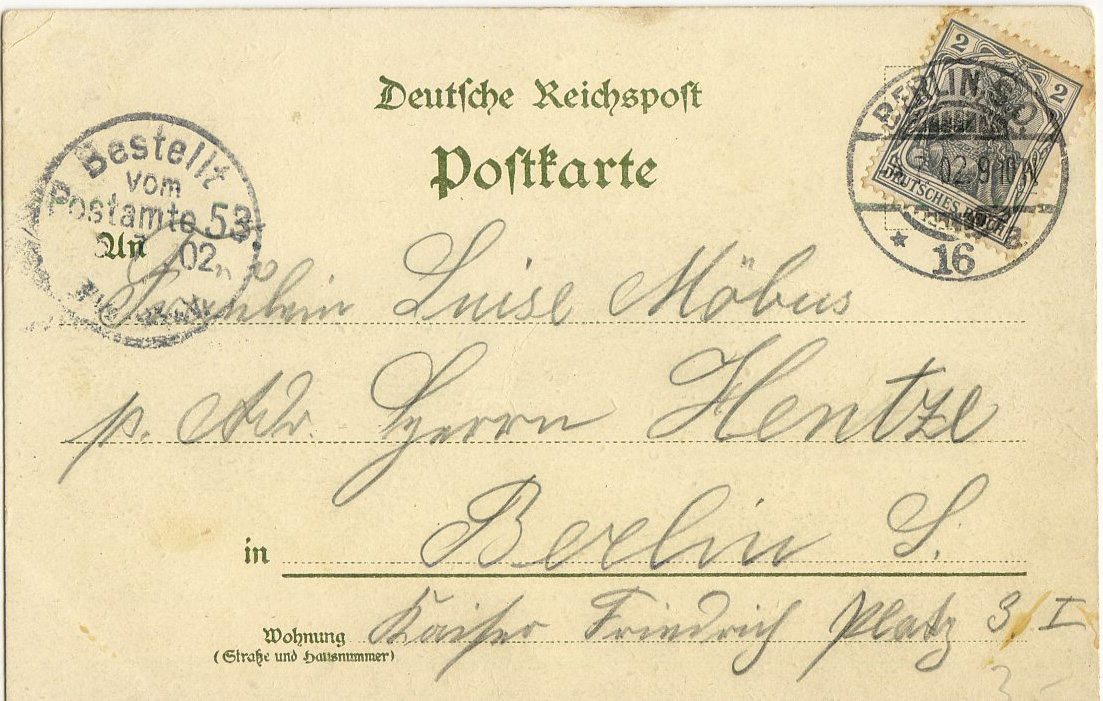 Deutsche Reichspost
Postkarte
Bestellt
vom
Postamte 53
02
2
2
DEUTSCHES REICH
BERLIN S.O.
02. 9-10
* 16 a
An
Fräulein Luise Möbus
p. Adr. Herrn Hentze
in Berlin S.
Wohnung Kaiser Friedrich Platz 3 I
(Straße und Hausnummer)